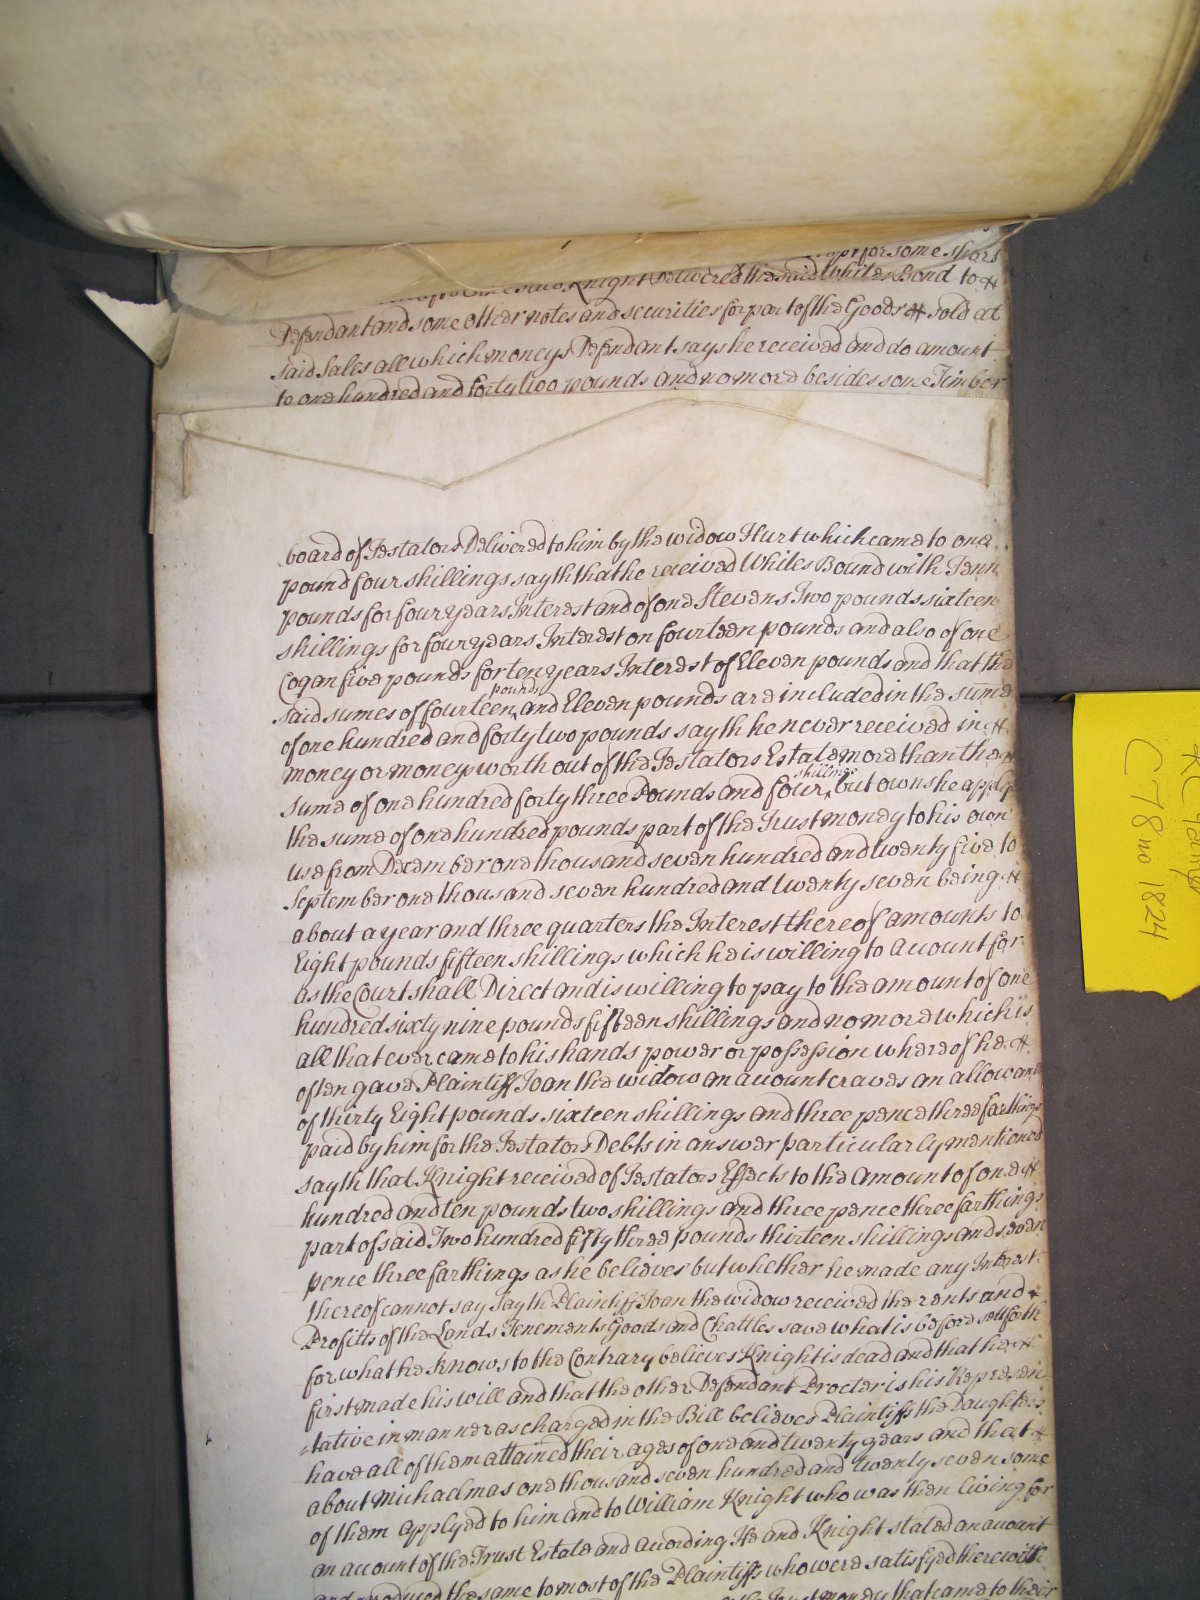 for some years
Knight Delivered the said Whites Bond to
Defendant and some other notes and securities for part of the Goods sold at
said Sales all which moneys Defendant says he received and do amount
to one hundred and forty two pounds and no more besides some Timber
board of Testators Delivered to him by the widow Hurt which came to one
pound four shillings sayth that he received Whites Bound with Tenn
pounds for four years Interest and of one Stevens Two pounds sixteen
shillings for four years Interest on fourteen pounds and also of one
Cogan five pounds for ten years Interest of Eleven pounds and that the
said sumes of fourteen pounds and Eleven pounds are included in the sume
of one hundred and forty two pounds sayth he never received in
money or moneys worth out of the Testators Estate more than the
sume of one hundred forty three Pounds and four shillings but owns he applyed
the sume of one hundred pounds part of the Trust money to his own
use from December one thousand seven hundred and twenty five to
September one thousand seven hundred and twenty seven being
about a year and three quarters the Interest thereof amounts to
Eight pounds fifteen shillings which he is willing to account for
as the Court shall Direct and is willing to pay to the amount of one
hundred sixty nine pounds fifteen shillings and no more which is
all that ever came to his hands power or possession whereof he
often gave Plaintiff Joan the widow an account craves an allowance
of thirty Eight pounds sixteen shillings and three pence three farthings
paid by him for the Testators Debts in answer particularly mentioned
sayth that Knight received of Testators Effects to the amount of one
hundred and ten pounds two shillings and three pence three farthings
part of said Two hundred fifty three pounds thirteen shillings and seven
pence three farthings as he believes but whether he made any Interest
thereof cannot say Sayth Plaintiff Joan the widow received the rents and
Profitts of the Lands Tenements Goods and Chattles save what is before sett forth
for what he knows to the Contrary believes Knight is dead and that he
first made his will and that the other Defendant Procter is his Represen
tative in manner as charged in the Bill believes Plaintiffs the Daughters
have all of them attained their ages of one and twenty years and that
about Michaelmas one thousand seven hundred and twenty seven some
of them applyed to him and to William Knight who was then living for
an account of the Trust Estate and acording He and Knight stated an account
and produced the same to most of the Plaintiffs who were satisfyed therewith
the Trust money that came to their
C 78 no 1824